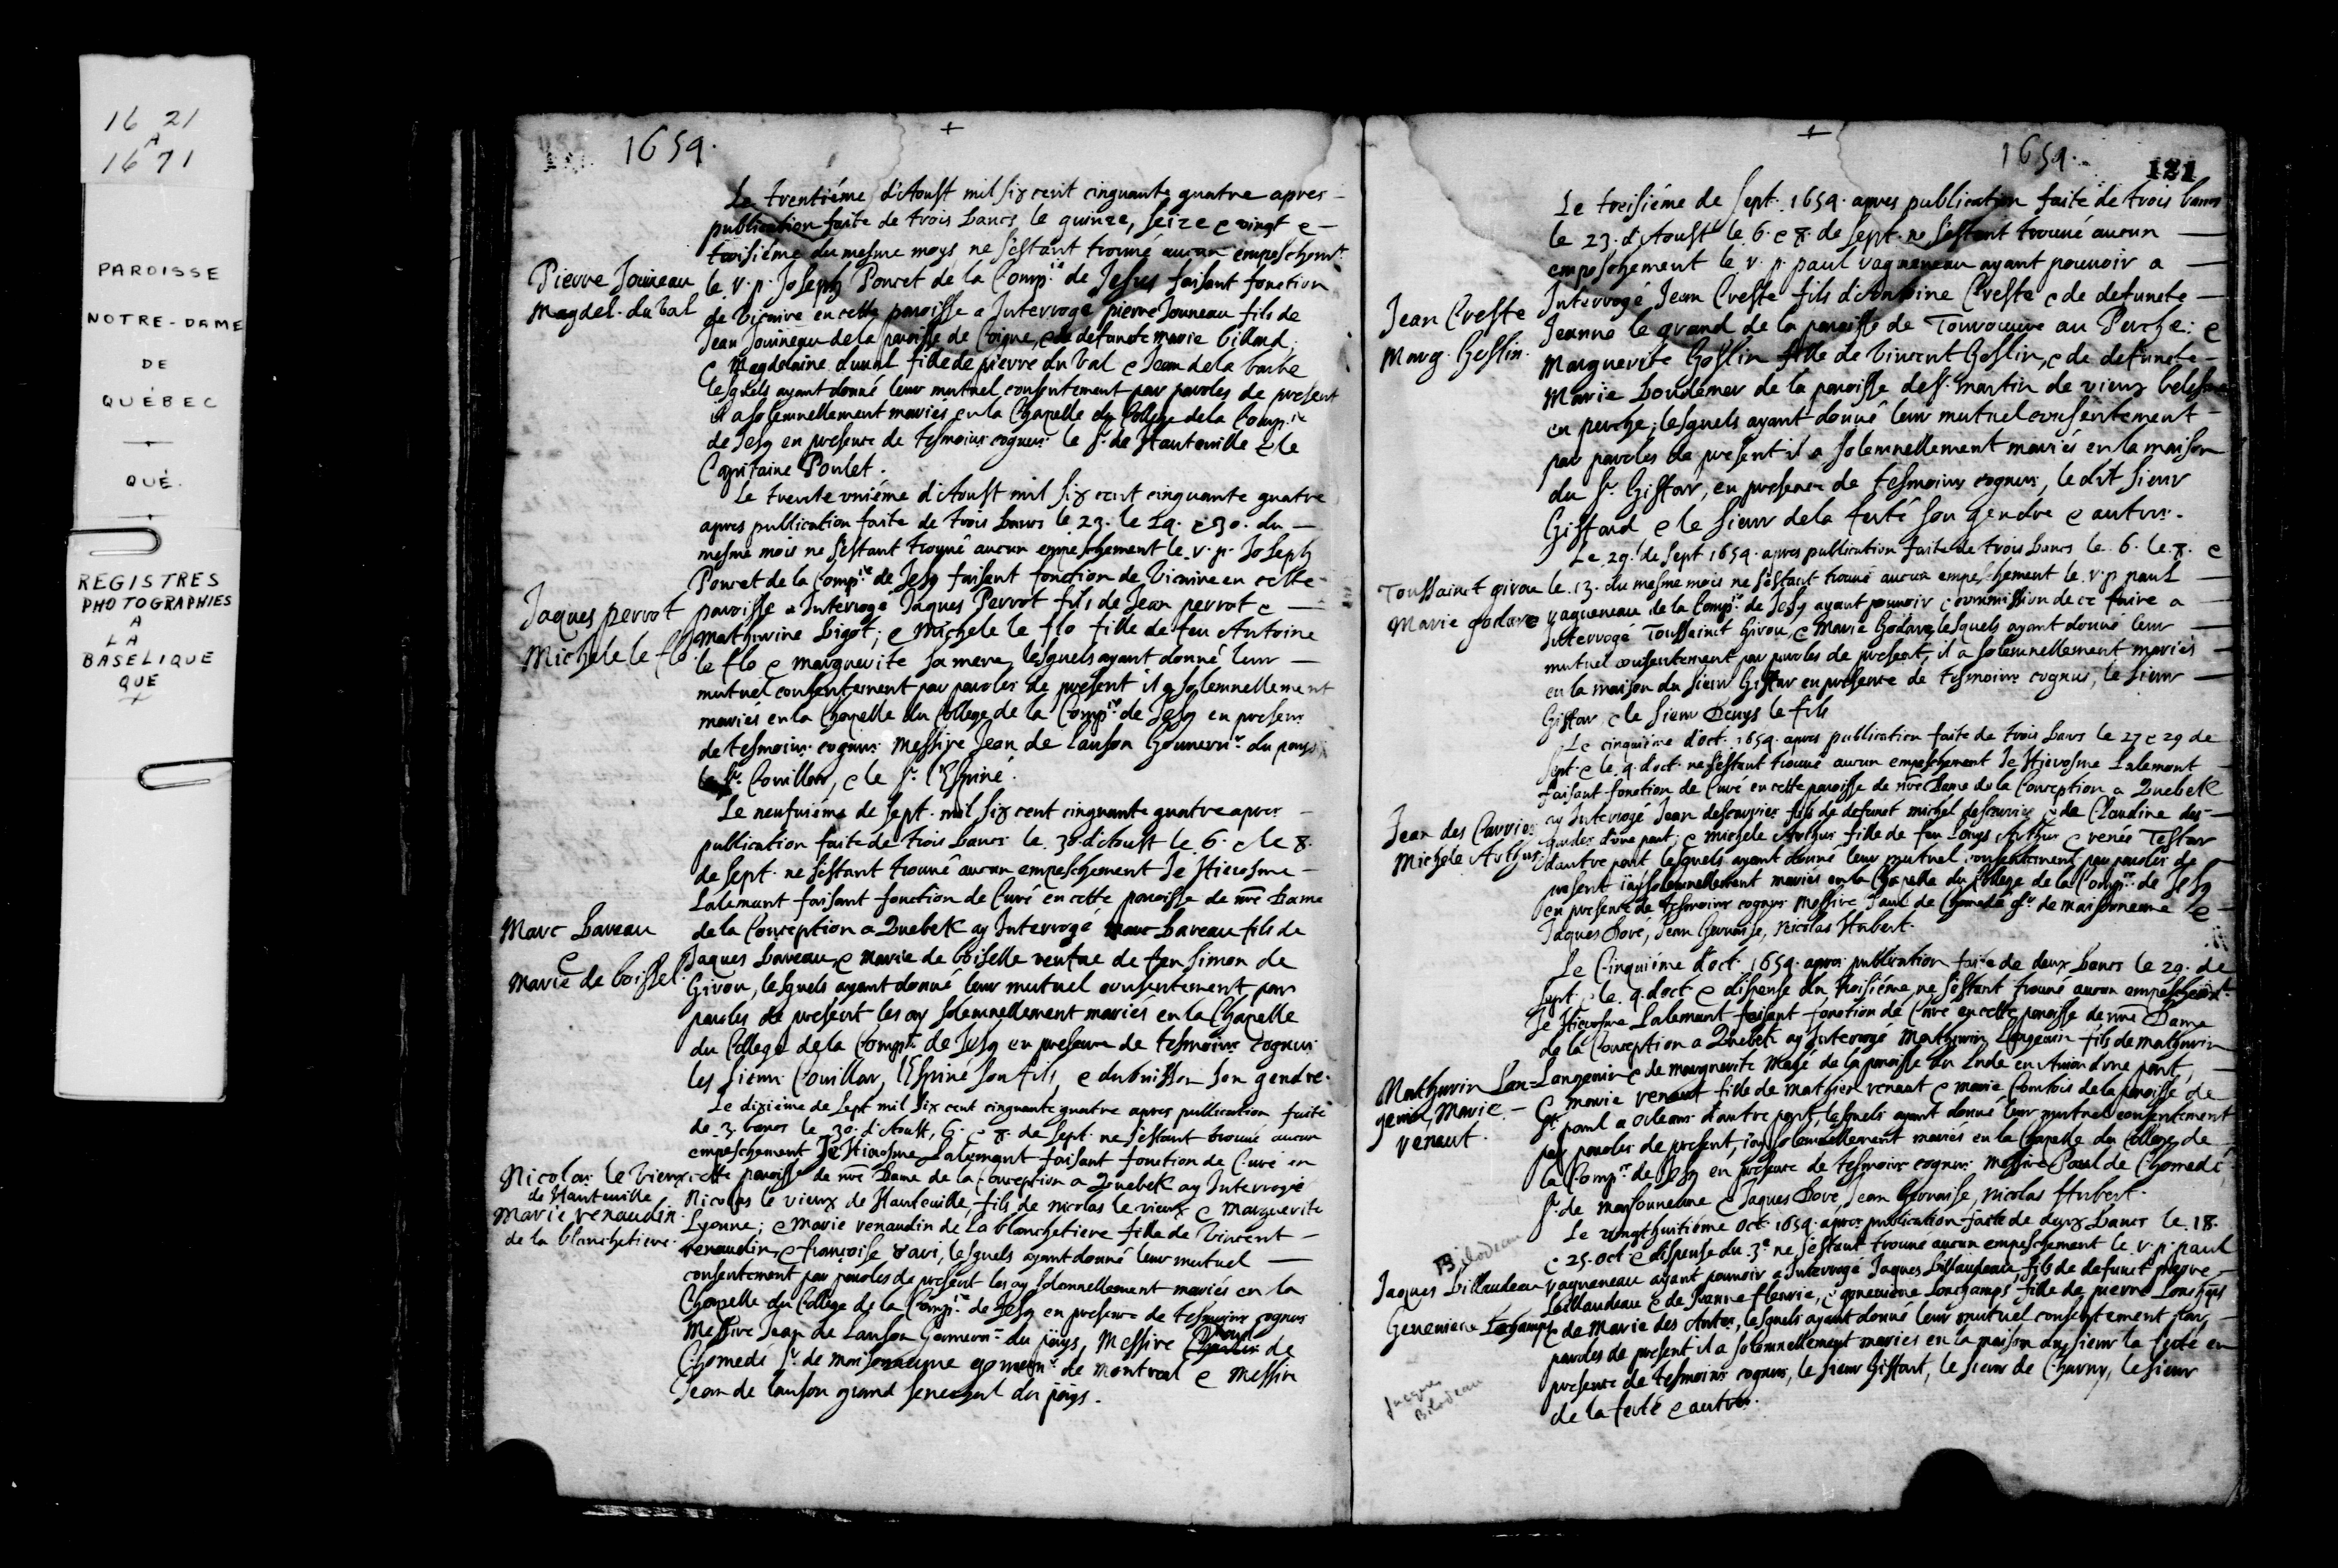 16 21
A
16 71
PAROISSE
NOTRE-DAME
DE
QUÉBEC
QUÉ.
REGISTRES
PHOTOGRAPHIES
A
LA
BASELIQUE
QUE
1654.
Le trentiéme d'Aoust mil six cent cinquante quatre apres
publication faite de trois bancs le quinze, seize e vingt e
troisiéme du mesme moys ne s'estant trouué aucun empeschemt
Pierre Joüineau
Magdel. du val
le r. p. Joseph Poncet de la Compie de Jesus faisant fonction
de Vicaire en cette paroisse a Interrogé pierre Jouneau fils de
Jean Jouineau de la paroisse de Coigne, e de defuncte marie billard
e Magdelaine duual fille de pierre du val e Jean de la barbe
lesquels ayant donné leur mutuel consentement par paroles de present
il a solemnellement mariés en la Chapelle du College de la Compie
de Jesq en presence de tesmoins cognus le Sr. de Hauteville e le
Capitaine Poulet.
Le trente vniéme d'Aoust mil six cent cinquante quatre
apres publication faite de trois bancs le 23. le 24. e 30. du
mesme mois ne s'estant trouué aucun empeschement le r. p. Joseph
Poncet de la Compie de Jesq faisant fonction de Vicaire en cette
Jaques perrot
Michele le flo.
paroisse a Interrogé Jaques Perrot fils de Jean perrot e
mathurine bigot; e Michele le flo fille de feu Antoine
le flo e marguerite sa mere, lesquels ayant donné leur
mutuel consentement par paroles de present il a solemnellement
mariés en la Chapelle du College de la Compie de Jesq en presence
de tesmoins cognus Messire Jean de lauson Gouuernr du pays
le Sr. Couillar, e le Sr. l'Espiné.
Le neufuiéme de Sept. mil six cent cinquante quatre apres
publication faite de trois bancs le 30. d'Aoust le 6. e le 8.
de Sept. ne s'estant trouué aucun empeschement Je Hierosme
Lalemant faisant fonction de Curé en cette paroisse de nre Dame
Marc bareau
e
Marie de boissel.
de la Conception a Quebek ay Interrogé Marc bareau fils de
Jaques bareau e marie de boiselle veufue de feu Simon de
Girou, lesquels ayant donné leur mutuel consentement par
paroles de present les ay solemnellement mariés en la Chapelle
du College de la Compie de Jesq en presence de tesmoins cognus
les sieurs Couillar, l'Espiné son fils, e dubuisson son gendre.
Le dixieme de Sept mil six cent cinquante quatre apres publication faite
de 3. bancs le 30. d'Aoust, 6. e 8. de Sept. ne s'estant trouué aucun
empeschement Je Hierosme Lalemant faisant fonction de Curé en
Nicolas le vieux
de Hauteuille
Marie renaudin
de la blanchetiere.
cette paroisse de nre Dame de la Conception a Quebek ay Interrogé
Nicolas le vieux de Hauteuille, fils de nicolas le vieux e Marguerite
Lyonne; e Marie renaudin de La blanchetiere fille de Vincent
renaudin e françoise, lesquels ayant donné leur mutuel
consentement par paroles de present les ay solemnellement mariés en la
Chapelle du College de la Compie de Jesq en presence de tesmoins cognus
Messire Jean de Lauson Gouuernr du pays, Messire paul de
Chomedé Sr. de maisonneuue gouuernr de montreal e Messire
Jean de lauson grand seneschal du pays.
1654.
121
Le treisiéme de Sept. 1654. apres publication faite de trois bancs
le 23. d'Aoust le 6. e 8. de Sept. ne s'estant trouué aucun
empeschement le r. p. paul ragueneau ayant pouuoir a
Jean Creste
Marg. Goslin.
Interrogé Jean Creste fils d'Antoine Creste e de defuncte
Jeanne le grand de la paroisse de Tourouuure au Perche; e
Marguerite Goslin fille de Vincent Goslin, e de defuncte
Marie boudemer de la paroisse de St. Martin de vieux
en perche; lesquels ayant donné leur mutuel consentement
par paroles de present il a solemnellement mariés en la maison
du Sr. Giffar, en presence de tesmoins cognus, le dit sieur
Giffard e le sieur de la ferté son gendre e autres.
Le 29. de Sept 1654. apres publication faite de trois bancs le 6. le 8. e
Toussainct girou
Marie godare
le 13. du mesme mois ne s'estant trouué aucun empeschement le r. p. paul
ragueneau de la Compie de Jesq ayant pouuoir e commission de ce faire a
Interrogé Toussainct Girou, e Marie Godare, lesquels ayant donné leur
mutuel consentement par paroles de present, il a solemnellement mariés
en la maison du sieur Giffar en presence de tesmoins cognus, le sieur
Giffar, e le sieur Denys le fils
Le cinquiéme d'oct. 1654. apres publication faite de trois bancs le 27 e 29 de
Sept. e le 4. d'oct. ne s'estant trouué aucun empeschement Je Hierosme Lalemant
faisant fonction de Curé en cette paroisse de nre Dame de la Conception a Quebek
Jean des Carries
Michele Arthus
ay Interrogé Jean descarries fils de defunct michel descarries e de Claudine des
d'une part; e michele Arthus fille de feu Louys Arthus e renée Testar
d'autre part, lesquels ayant donné leur mutuel consentement par paroles de
present i'ay solemnellement mariés en la Chapelle du College de la Compie de Jesq
en presence de tesmoins cognus Messire Paul de Chomedé Sr de maisonneuue e
Jaques Dore, Jean Geruaise, Nicolas Hubert.
Le Cinquiéme d'oct 1654. apres publication faite de deux bancs le 29. de
Sept. e le 4. d'oct e dispense du troisiéme, ne s'estant trouué aucun empeschemt
Je Hierosme Lalemant faisant fonction de Curé en cette paroisse de nre Dame
de la Conception a Quebek ay Interrogé Mathurin Langeuin fils de mathurin
Mathurin Lan=
geuin, Marie
renaut.
Langeuin e de marguerite de la paroisse du Lude en Aniou d'une part,
e marie renaut fille de mathieu renaut e marie de la paroisse de
St. paul a Orleans d'autre part, lesquels ayant donné leur mutuel consentement
par paroles de present, i'ay solemnellement mariés en la Chapelle du College de
la Compie de Jesq en presence de tesmoins cognus Messire Paul de Chomedé
Sr. de maisonneuue e Jaques Dore, Jean Geruaise, Nicolas Hubert.
Le vingthuitiéme oct. 1654. apres publication faite de deux bancs le 18.
e 25. oct e dispense du 3e ne s'estant trouué aucun empeschement le r. p. paul
Bilodeau
Jaques billaudeau
Geneuieue
ragueneau ayant pouuoir a Interrogé Jaques billaudeau, fils de defunct pierre
billaudeau e de Jeanne fleurie, e geneuieue Lonchamps, fille de pierre Lonchãps
e de Marie, lesquels ayant donné leur mutuel consentement par
paroles de present il a solemnellement mariés en la maison du sieur la ferté en
presence de tesmoins cognus, le sieur Giffart, le sieur de Charny, le sieur
de la ferté e autres.
Jacques
Bilodeau